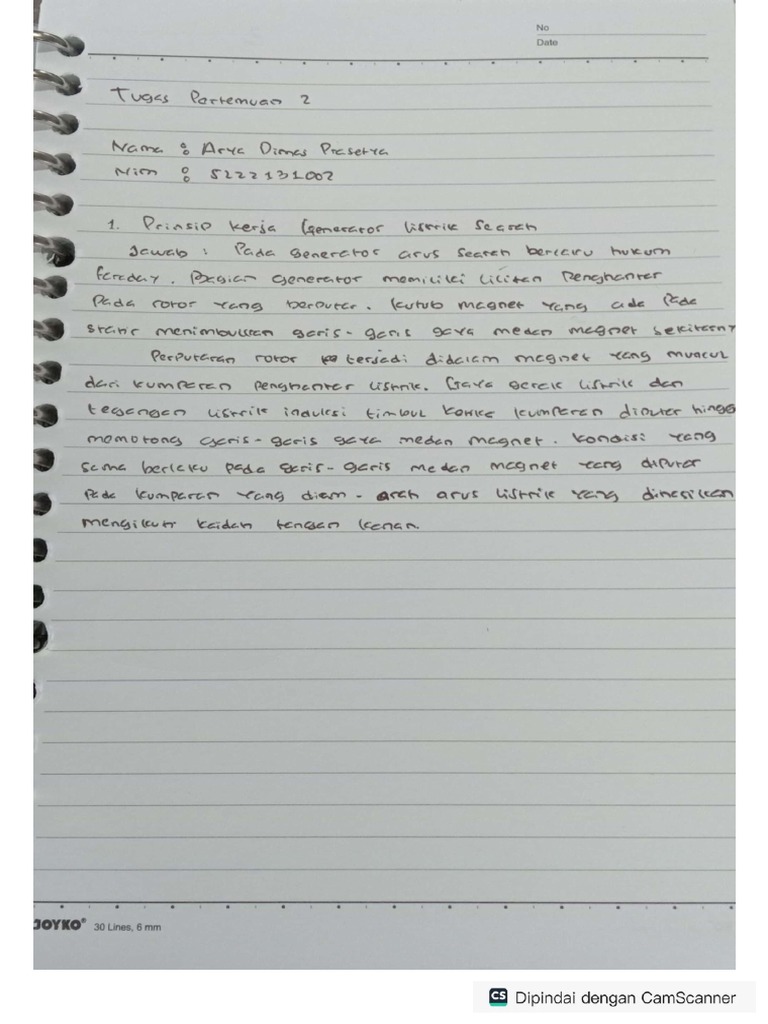 No
Date
Tugas Pertemuan 2
Nama : Arya Dimas Prasetya
Nim : 5222131002
1. Prinsip kerja Generator listrik Searah
Jawab : Pada Generator arus searah berlaku hukum
faraday. Bagian generator memiliki lilitan Penghantar
Pada rotor yang berputar. Kutub magnet yang ada Pada
stator menimbulkan garis-garis gaya medan magnet sekitarny
Perputaran rotor terjadi didalam magnet yang muncul
dari kumparan penghantar listrik. Gaya gerak listrik dan
tegangan listrik induksi timbul ketika kumparan diputar hingga
memotong garis-garis gaya medan magnet. Kondisi yang
sama berlaku pada garis-garis medan magnet yang diputar
Pada kumparan yang diam. arah arus listrik yang dihasilkan
mengikuti kaidah tangan kanan.
JOYKO® 30 Lines, 6 mm
CS Dipindai dengan CamScanner